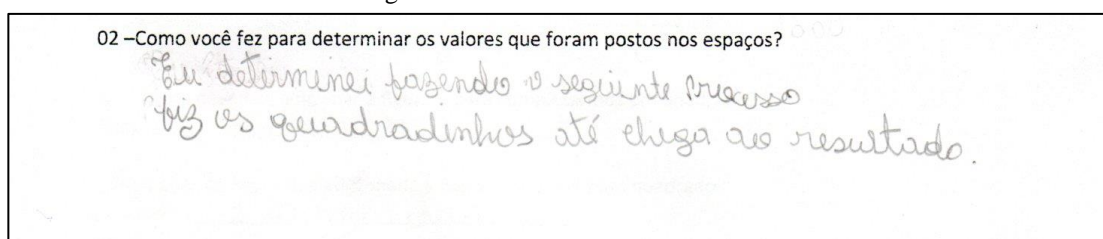 02 –Como você fez para determinar os valores que foram postos nos espaços?
Eu determinei fazendo o seguinte processo
fiz os quadradinhos até chega ao resultado.